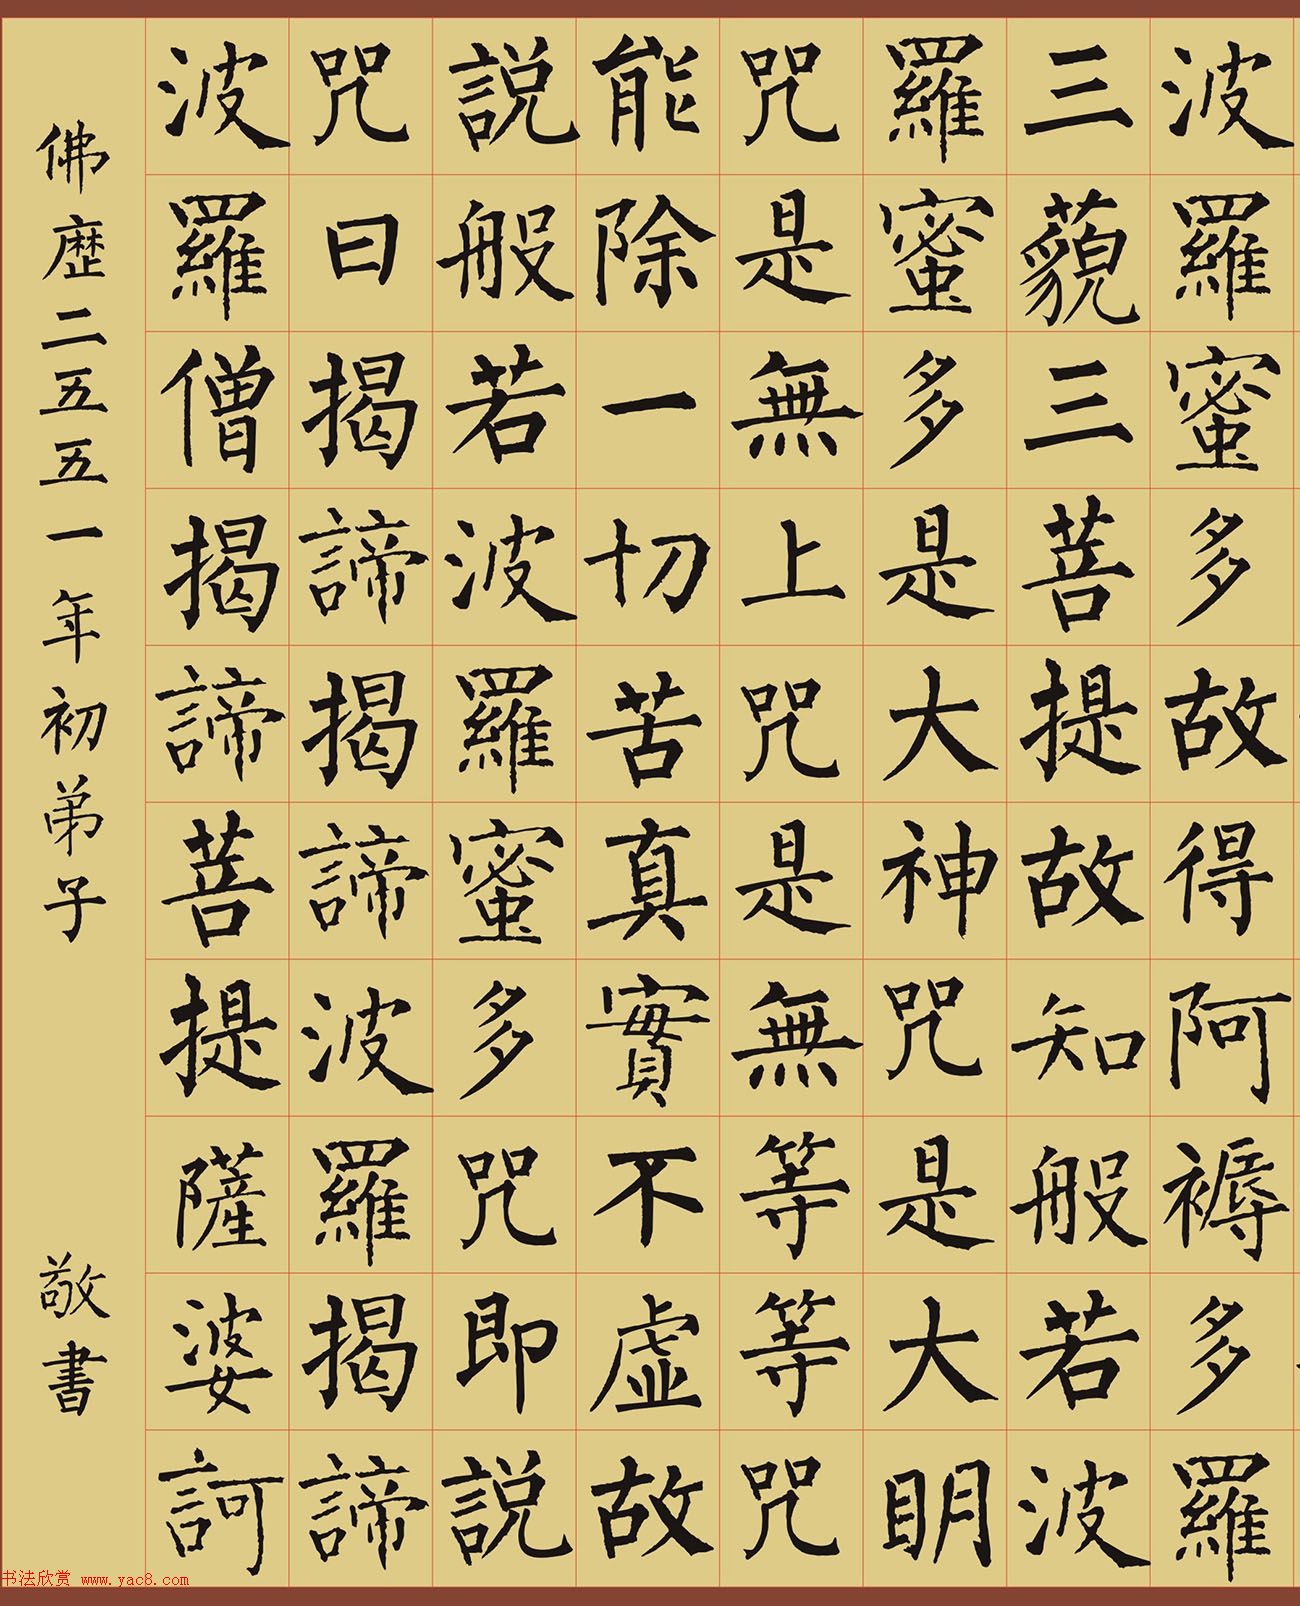 波羅蜜多故得阿褥多羅
三藐三菩提故知般若波
羅蜜多是大神咒是大明
咒是無上咒是無等等咒
能除一切苦真實不虛故
説般若波羅蜜多咒即説
咒曰揭諦揭諦波羅揭諦
波羅僧揭諦菩提薩婆訶
佛歷二五五一年初弟子 敬書
书法欣赏 www.yac8.com